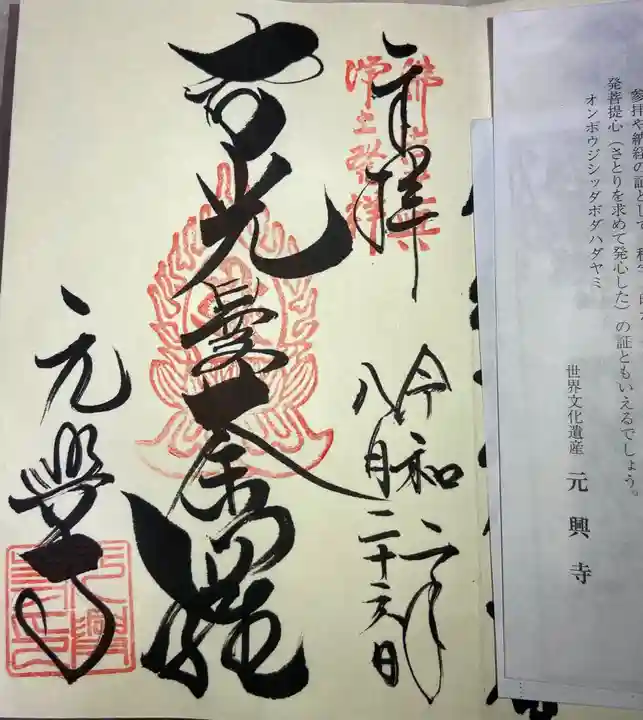 参拝や納経の証として
発菩提心(さとりを求めて発心した)の証ともいえるでしょう。
オンボウジシッダボダハダヤミ
世界文化遺産 元興寺
奉拝
佛法元興
浄土発祥
令和二年
八月二十六日
智光曼荼羅
元興寺